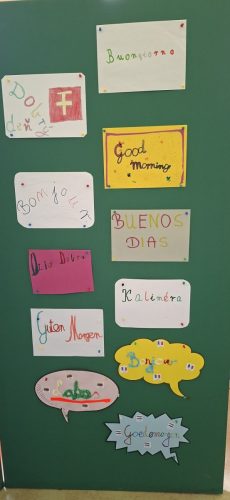 Buongiorno
Good
morning
Bonjour
BUENOS
DIAS
Dzień Dobry
Kaliméra
Guten Morgen
Bonjour
Goedemorgen